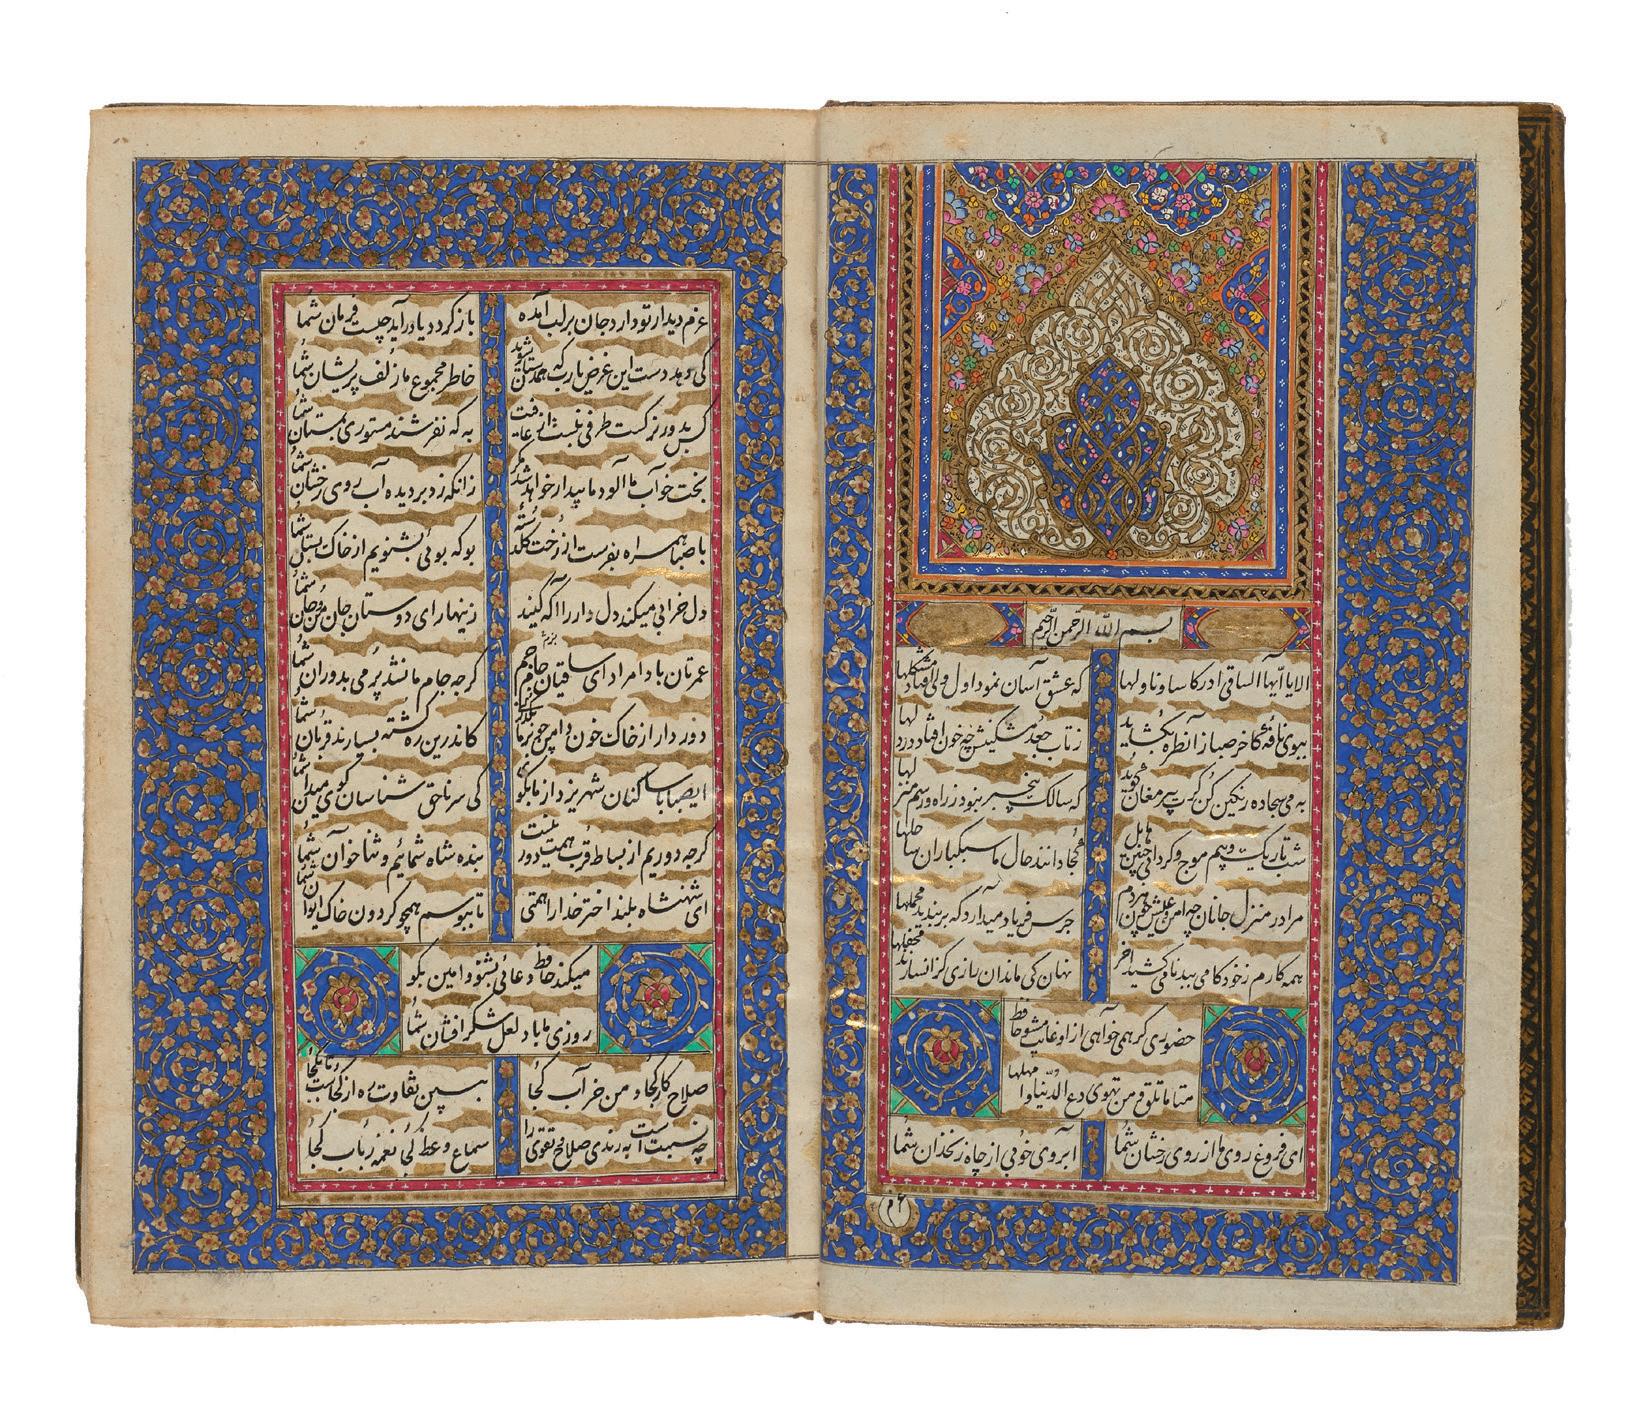 بسم الله الرحمن الرحیم
الا یا ایها الساقی ادر کاسا و ناولها که عشق آسان نمود اول ولی افتاد مشکلها
ببوی نافهٔ کاخر صبا زان طره بگشاید ز تاب جعد مشکینش چه خون افتاد در دلها
به می سجاده رنگین کن گرت پیر مغان گوید که سالک بیخبر نبود ز راه و رسم منزلها
شب تاریک و بیم موج و گردابی چنین هایل کجا دانند حال ما سبکباران ساحلها
مرا در منزل جانان چه امن و عیش چون هردم جرس فریاد میدارد که بربندید محملها
همه کارم ز خود کامی ببدنامی کشید آخر نهان کی ماند آن رازی کزو سازند محفلها
حضوری گر همی خواهی ازو غایب مشو حافظ
متی ما تلق من تهوی دع الدنیا و اهملها
ای فروغ روی ماه از روی رخشان شما آبروی خوبی از چاه زنخدان شما
عزم دیدار تو دارد جان بر لب آمده باز گردد یا درآید چیست فرمان شما
کی دهد دست این غرض یا رب که همدستان شوند خاطر مجموع ما زلف پریشان شما
کس بدور نرگست طرفی نبست از عافیت به که نفروشند مستوری بمستان شما
بخت خواب آلود ما بیدار خواهد شد مگر زانکه زد بر دیده آب روی رخشان شما
با صبا همراه بفرست از رخت گلدسته بو که بوئی بشنویم از خاک بستان شما
دل خرابی میکند دلدار را آگه کنید زینهار ای دوستان جان من و جان شما
عمرتان باد و مراد ای ساقیان بزم جم گرچه جام ما نشد پر می بدوران شما
دور دار از خاک و خون دامن چو بر ما بگذری کاندرین ره کشته بسیارند قربان شما
ای صبا با ساکنان شهر یزد از ما بگو کی سر ناحق شناسان گوی میدان شما
گرچه دوریم از بساط قرب همت دور نیست بنده شاه شمائیم و ثناخوان شما
ای شهنشاه بلند اختر خدا را همتی تا ببوسم همچو گردون خاک ایوان شما
میکند حافظ دعائی بشنو و امین بگو
روزی ما باد لعل شکر افشان شما
صلاح کار کجا و من خراب کجا ببین تفاوت ره از کجاست تا بکجا
چه نسبت است به رندی صلاح و تقوی را سماع وعظ کجا نغمه رباب کجا